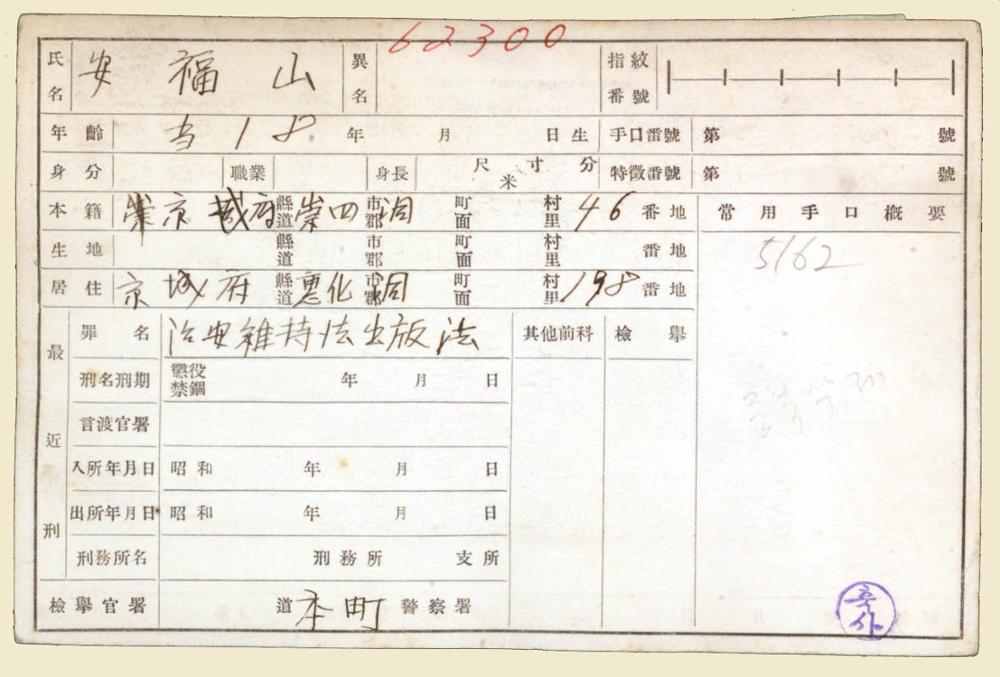 62300
氏名 安福山 異名 指紋番號
年齡 当18年 月 日生 手口番號 第 號
身分 職業 身長 尺寸分 米 特徵番號 第 號
本籍 京城府 縣道 崇四 市郡 洞 町面 村里 46 番地 常用手口概要
5162
生地 縣道 市郡 町面 村里 番地
居住 京城府 縣道 惠化 市郡 洞 町面 村里 198 番地
最近刑
罪名 治安維持法出版法 其他前科 檢擧
刑名刑期 懲役 禁錮 年 月 日
言渡官署
入所年月日 昭和 年 月 日
出所年月日 昭和 年 月 日
刑務所名 刑務所 支所
檢擧官署 道 本町 警察署